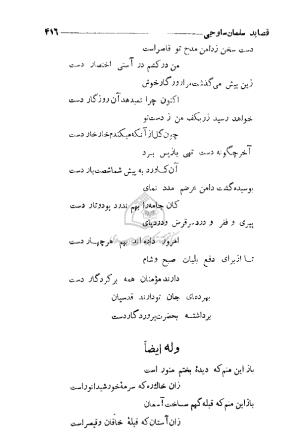 قصاید سلمان ساوجی ۴۱۶
دست سخن زدامن مدح تو قاصراست
من در کشم در آستی اختصار دست
زین پیش می گذشت مرا روزگار خوش
اکنون چرا نمیدهد آن روزگار دست
خواهد رسید زر بکف من ز دست تو
چون گل از آنکه میکندم خار خار دست
آخر چگونه دست تهی باز پس برد
آن کاورد به پیش شما شصت بار دست
بوسیده گشت دامن عزمم مدد نمای
کان جامه را بهم ندرد پود و تار دست
پیری و فقر و درد سر قرض و درد پای
امروز داده اند بهم هر چهار دست
تا از برای دفع بلیات صبح و شام
دارند مؤمنان همه بر کردگار دست
بهر دعای جان تو دارند قدسیان
برداشته بحضرت پروردگار دست
وله ایضاً
باز این منم که دیدهٔ بختم منور است
زان خاک در که سرمهٔ خورشید انور است
باز این منم که قبله گهم ساخت آسمان
زان آستان که قبلهٔ خاقان و قیصر است